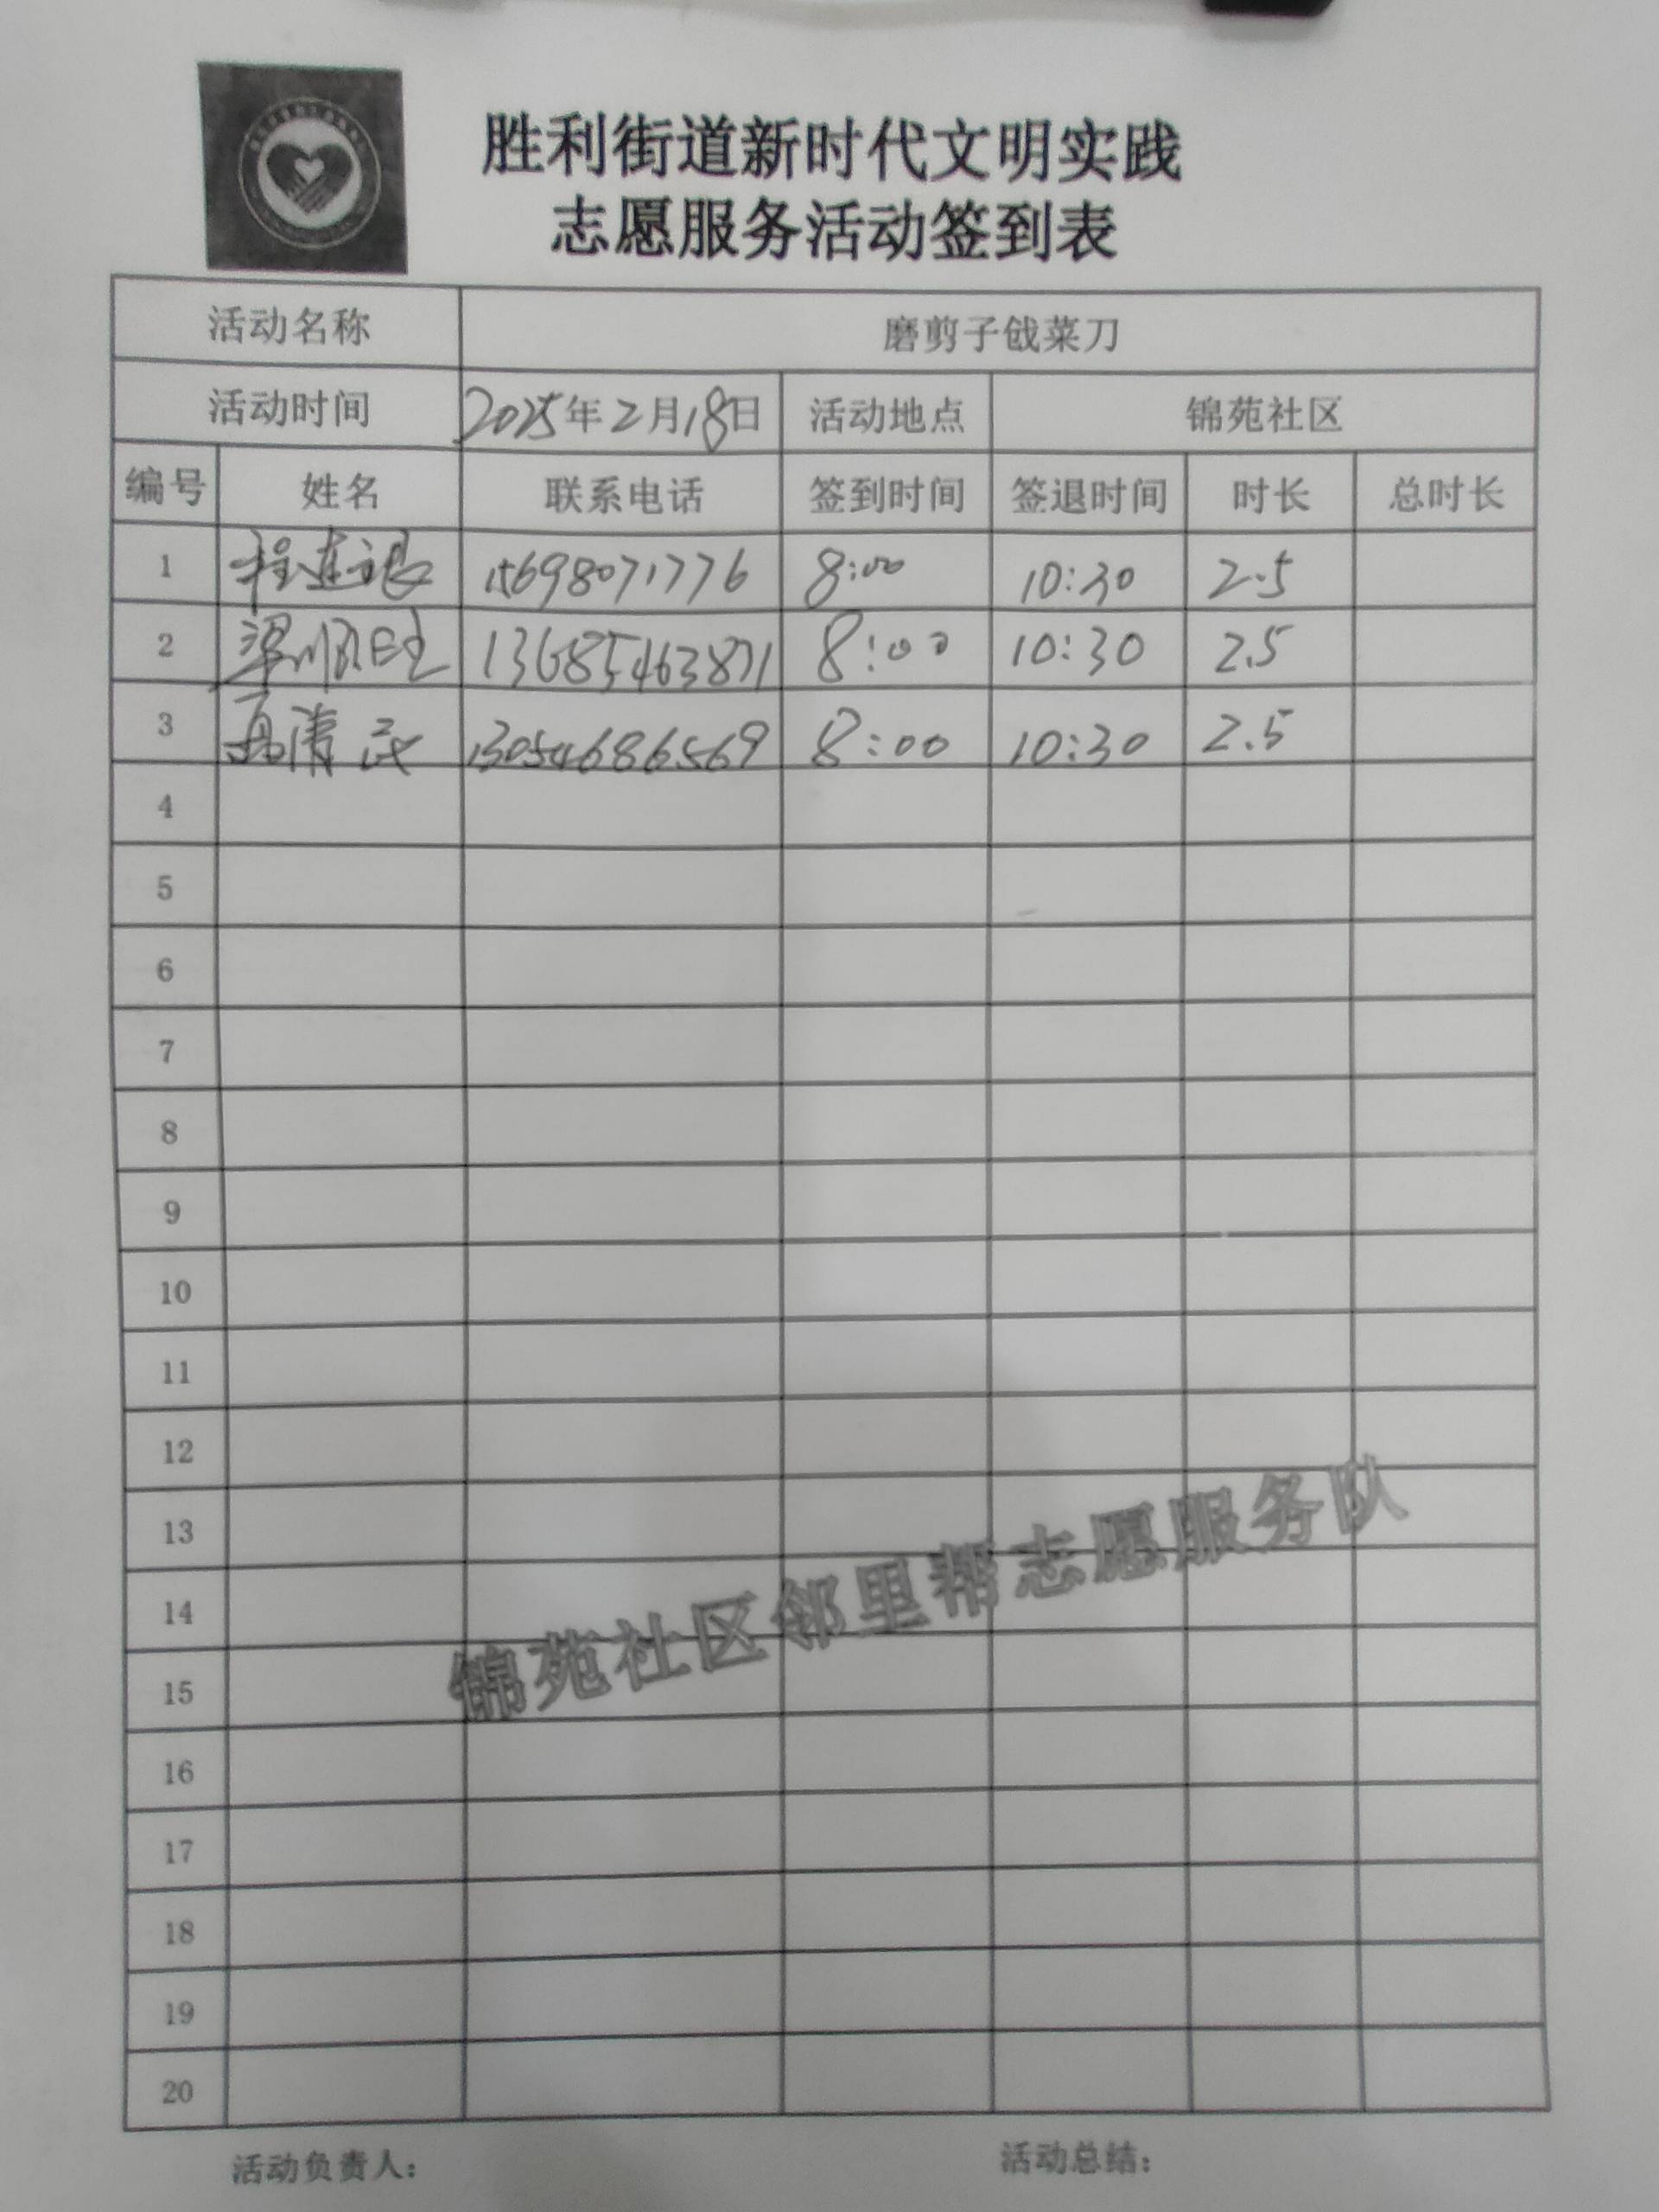 胜利街道新时代文明实践
志愿服务活动签到表
活动名称 磨剪子戗菜刀
活动时间 2025年2月18日 活动地点 锦苑社区
编号 姓名 联系电话 签到时间 签退时间 时长 总时长
1 15698071776 8:00 10:30 2.5
2 梁顺旺 13685463871 8:00 10:30 2.5
3 高清武 13054686569 8:00 10:30 2.5
4
5
6
7
8
9
10
11
12
13
14
15
锦苑社区邻里帮志愿服务队
16
17
18
19
20
活动负责人： 活动总结：